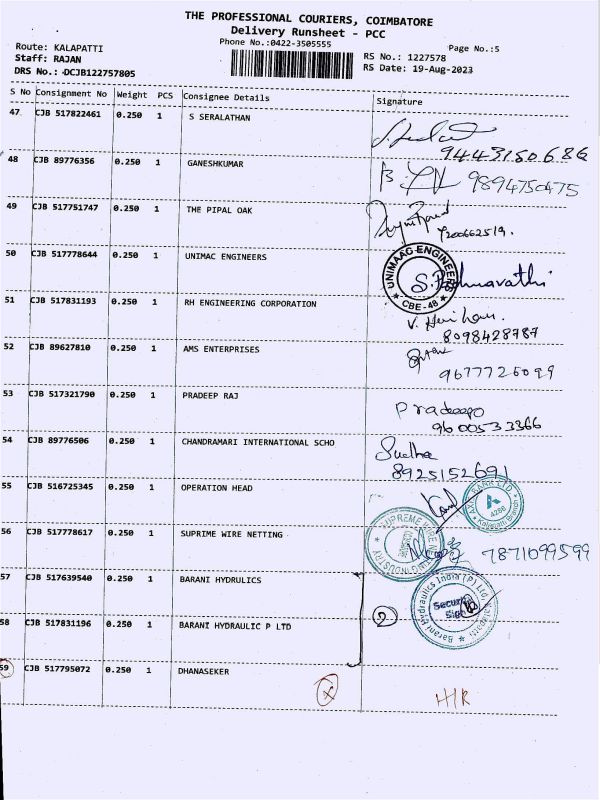 THE PROFESSIONAL COURIERS, COIMBATORE
Delivery Runsheet - PCC
Phone No.:0422-3505555
Page No.:5
Route: KALAPATTI
Staff: RAJAN
DRS No.: DCJB122757805
RS No.: 1227578
RS Date: 19-Aug-2023
S No Consignment No Weight PCS Consignee Details Signature
47 CJB 517822461 0.250 1 S SERALATHAN
9443150686
48 CJB 89776356 0.250 1 GANESHKUMAR
9894750475
49 CJB 517751747 0.250 1 THE PIPAL OAK
7200662519.
50 CJB 517778644 0.250 1 UNIMAC ENGINEERS
UNIMAAC ENGINEERS
CBE-48
51 CJB 517831193 0.250 1 RH ENGINEERING CORPORATION
8098428787
52 CJB 89627810 0.250 1 AMS ENTERPRISES
9677725099
53 CJB 517321790 0.250 1 PRADEEP RAJ
Pradeep
9600533366
54 CJB 89776506 0.250 1 CHANDRAMARI INTERNATIONAL SCHO
Sudha
8925152691
55 CJB 516725345 0.250 1 OPERATION HEAD
AXIS BANK LTD
4266
Kalapatti Branch
56 CJB 517778617 0.250 1 SUPRIME WIRE NETTING
SUPREME WIRE NETTING INDUSTRY
7871099599
57 CJB 517639540 0.250 1 BARANI HYDRULICS
58 CJB 517831196 0.250 1 BARANI HYDRAULIC P LTD
2
Barani Hydraulics India (P) Ltd, Kalapatti
Security
Sign
59 CJB 517795072 0.250 1 DHANASEKER
X
H/R